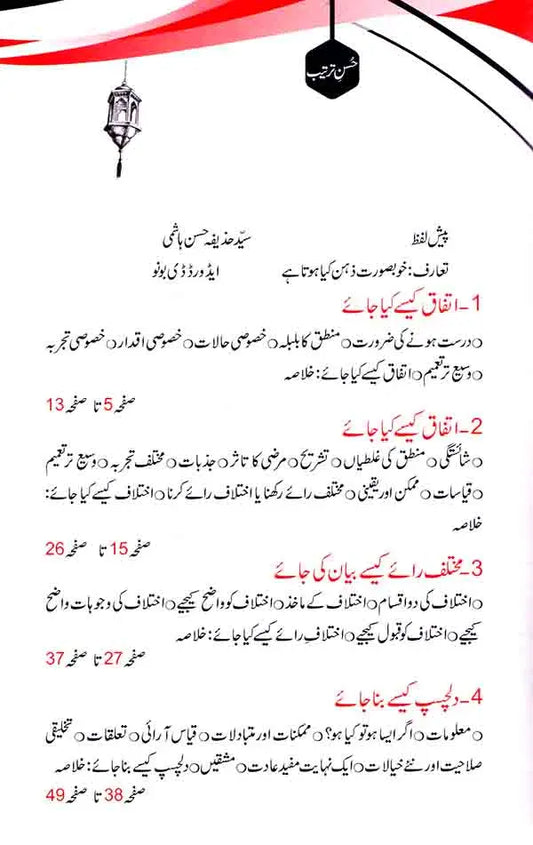 حُسنِ ترتیب
پیش لفظ سیّد حذیفہ حسن ہاشمی
تعارف: خوبصورت ذہن کیا ہوتا ہے ایڈورڈ ڈی بونو
1-اتفاق کیسے کیا جائے
○درست ہونے کی ضرورت○منطق کا بلبلہ○خصوصی حالات○خصوصی اقدار○خصوصی تجربہ
○وسیع تر تعمیم○اتفاق کیسے کیا جائے: خلاصہ
صفحہ 5 تا صفحہ 13
2-اتفاق کیسے کیا جائے
○شائستگی○منطق کی غلطیاں○تشریح○مرضی کا تاثر○جذبات○مختلف تجربہ○وسیع تر تعمیم
○قیاسات○ممکن اور یقینی○مختلف رائے رکھنا یا اختلاف رائے کرنا○اختلاف کیسے کیا جائے:
خلاصہ
صفحہ 15 تا صفحہ 26
3-مختلف رائے کیسے بیان کی جائے
○اختلاف کی دو اقسام○اختلاف کے ماخذ○اختلاف کو واضح کیجیے○اختلاف کی وجوہات واضح
کیجیے○اختلاف کو قبول کیجیے○اختلافِ رائے کیسے کیا جائے: خلاصہ
صفحہ 27 تا صفحہ 37
4-دلچسپ کیسے بنا جائے
○معلومات○اگر ایسا ہو تو کیا ہو؟○ممکنات اور متبادلات○قیاس آرائی○تعلقات○تخلیقی
صلاحیت اور نئے خیالات○ایک نہایت مفید عادت○مشقیں○دلچسپ کیسے بنا جائے: خلاصہ
صفحہ 38 تا صفحہ 49